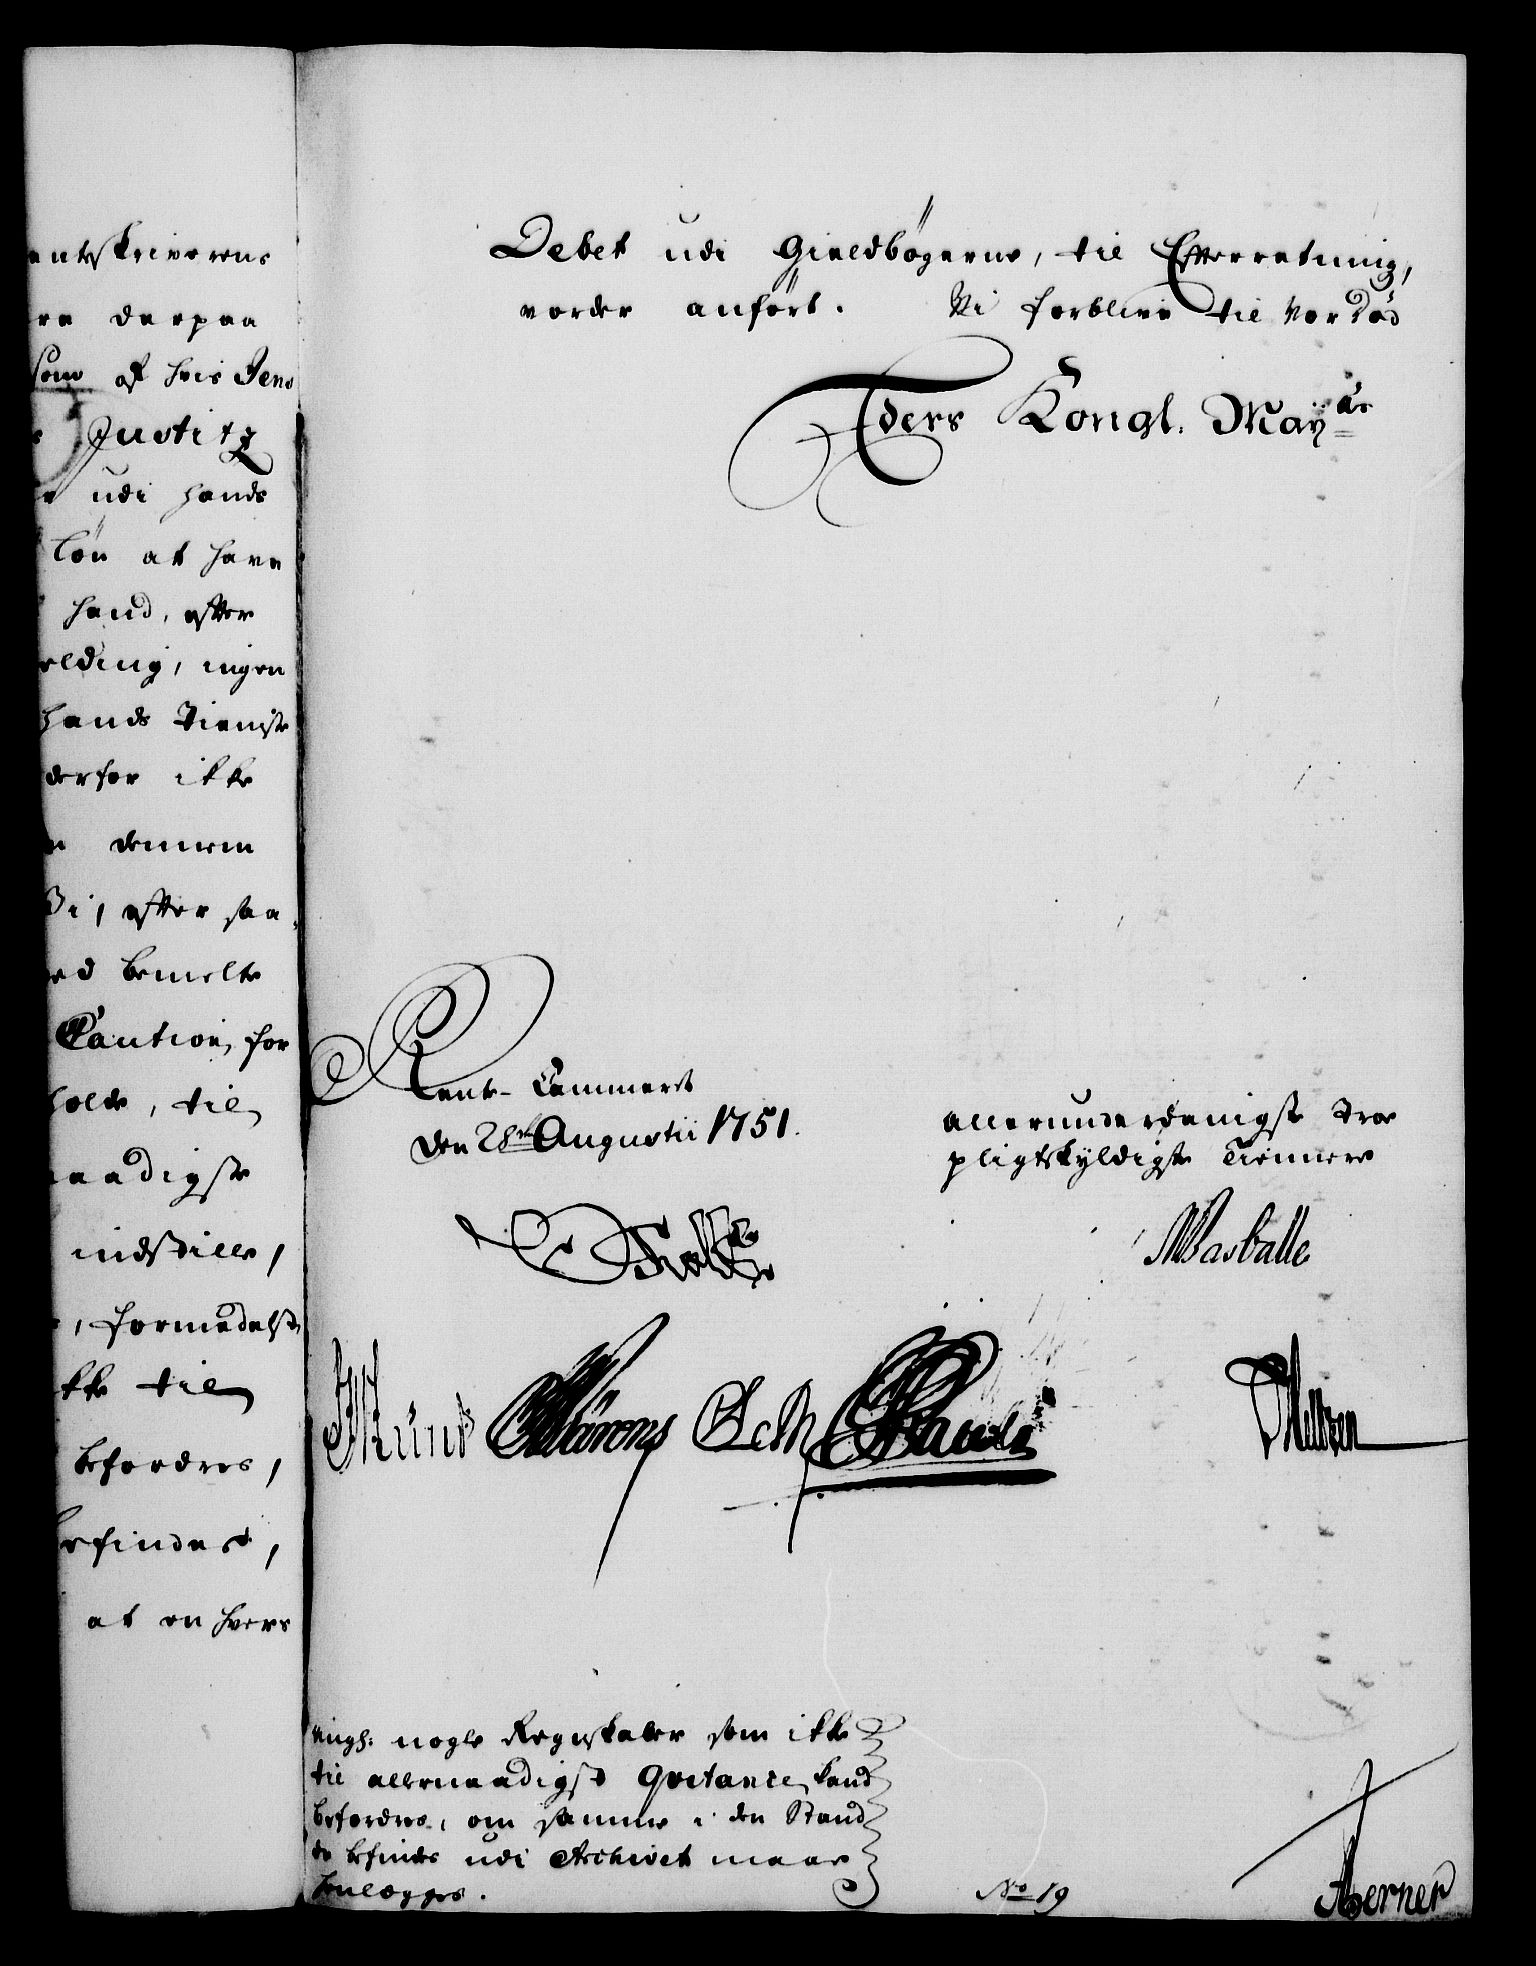 entskriverens
re derpaa
som af hvis Jens
Justitz
udi hands
Løn at have
hand, efter
elding, ingen
hands Tieniste
derfor ikke
dennem
Vi, efter saa-
ed bemelte
Caution, for
holde, til
naadigste
indstille,
, formedelst
kke til
befordres,
befindes,
at en hvers
Debet udi Gieldbøgerne, til Efterretning,
vorder anført. Vi forblive til vor Død
Eders Kongl. Mayts
Rente-Cammeret
den 28de Augustii 1751.
allerunderdanigste troe
pligtskyldigste Tiennere
Holst
Wasballe
Munk
Pauli
angh: nogle Regnskaber som ikke
til allernaadigst Qvitance kand
befordres, om samme i den Stand
de befindes udi Archivet maae
henlægges.
No 19
Berner